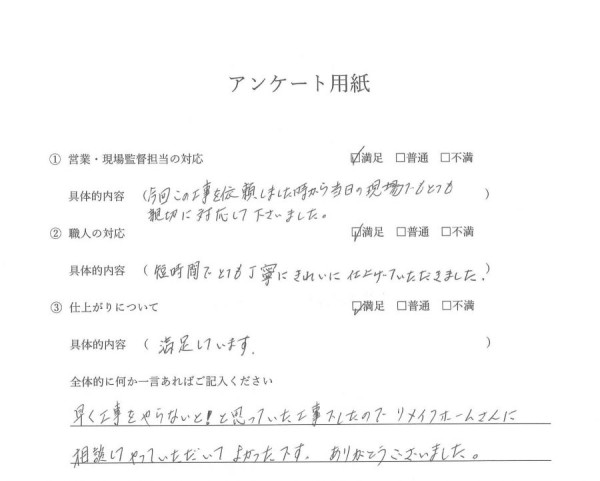 アンケート用紙
① 営業・現場監督担当の対応 ☑満足 □普通 □不満
具体的内容 （今回この工事を依頼しました時から当日の現場でもとても
親切に対応して下さいました。）
② 職人の対応 ☑満足 □普通 □不満
具体的内容 （短時間でとても丁寧にきれいに仕上げていただきました。）
③ 仕上がりについて ☑満足 □普通 □不満
具体的内容 （満足しています。）
全体的に何か一言あればご記入ください
早く工事をやらないと!と思っていた工事でしたのでリメイクホームさんに
相談してやっていただいてよかったです。ありがとうございました。